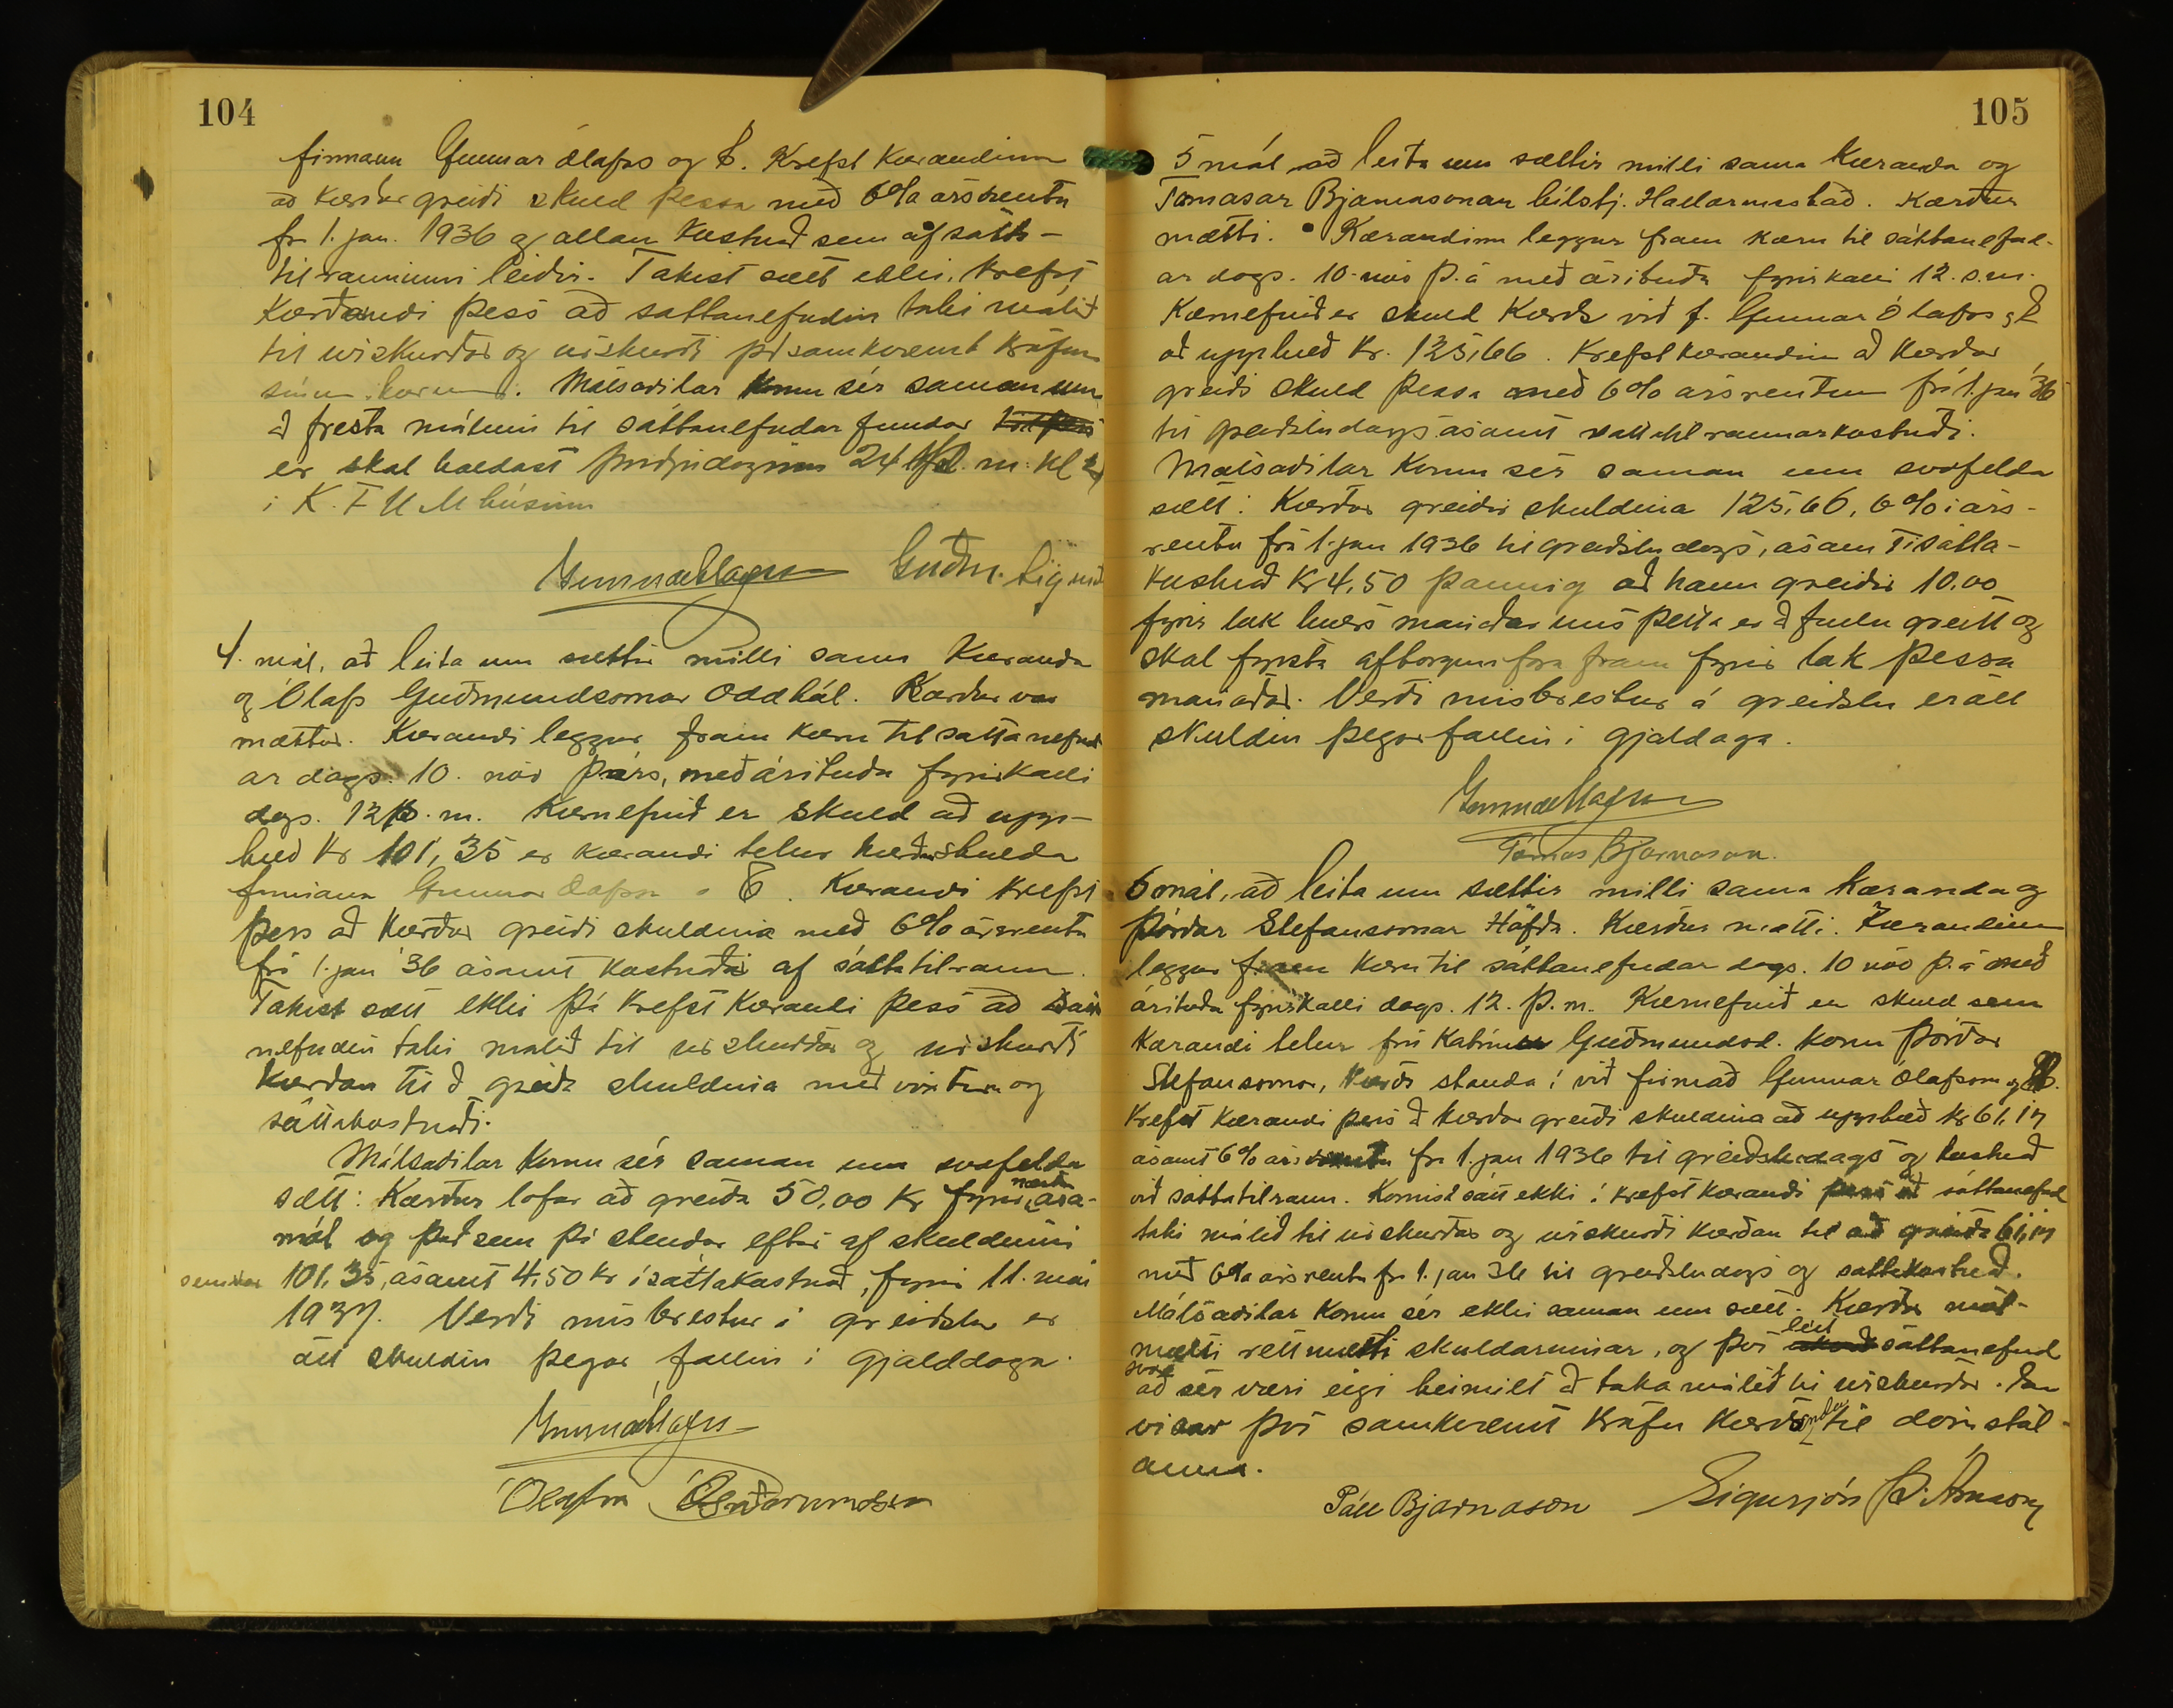 104
firmann Gunnar Ólafss og Co. Krefst kærandinn
að kærður greiði skuld þessa með 6% ársrentu
fr 1. jan. 1936 og allan kostnað sem af sátta-
tilrauninni leiðir. Takist sætt ekki, krefst
kærandi þess að sáttanefndin taki málið
til úrskurðar og úrskurði samkvæmt kröfum
sínum. Málsaðilar komu sér saman um
að fresta málinu til sáttanefndar fundar
er skal haldast þriðjudaginn 24 þ. m. kl
i K. F. U. M húsinu
Guðm. Sigurð
4. mál, að leita um sættir milli sama kæranda
og Ólafs Guðmundssonar Oddhól. Kærður var
mættur. Kærandi leggur fram kæru til sáttanefnd
ar dags. 10. nóv þ. árs, með árituðu fyrirkalli
dags. 12 þ. m. Kæruefnið er skuld að upp-
hæð kr 101,35 er kærandi telur kærðan skulda
firmanu Gunnar Ólafsson & Co. Kærandi krefst
þess að kærður greiði skuldina með 6% ársrentu
frá 1. jan '36 ásamt kostnaði af sáttatilraun.
Takist sætt ekki þá krefst kærandi þess að sátta
nefndin taki málið til úrskurðar og úrskurði
kærðan til að greiða skuldina með vöxtum og
sáttakostnaði.
Málsaðilar komu sér saman um svofelda
sætt: Kærður lofar að greiða 50,00 kr fyrir næstu ára-
mót og það sem þá stendur eftir af skuldinni
101,35, ásamt 4,50 kr í sáttakostnað, fyrir 11. maí
1937. Verði misbrestur á greiðslu er
öll skuldin þegar fallin í gjalddaga.
Ólafur Guðmundsson
105
5 mál, að leita um sættir milli sama kæranda og
Tómasar Bjarnasonar bílstj. Hallormsstað. Kærður
mætti. Kærandinn leggur fram kæru til sáttanefnd-
ar dags. 10. nóv þ. á með árituðu fyrirkalli 12. s.m.
Kæruefnið er skuld kærðs við f. Gunnar Ólafss & Co
að upphæð kr. 125,66. Krefst kærandinn að kærður
greiði skuld þessa með 6% ársrentum frá 1. jan '36
til greiðsludags ásamt sáttatilraunarkostnaði.
Málsaðilar komu sér saman um svofelda
sætt: Kærður greiðir skuldina 125,66, 6% í árs-
rentu frá 1. jan 1936 til greiðsludags, ásamt í sátta-
kostnað kr 4,50 þannig að hann greiðir 10.00
fyrir lok hvers mánaðar uns þetta er að fullu greitt og
skal fyrsta afborgun fara fram fyrir lok þessa
mánaðar. Verði misbrestur á greiðslu er öll
skuldin þegar fallin í gjalddaga.
Tómas Bjarnason.
6 mál, að leita um sættir milli sama kæranda og
Þórðar Stefánssonar Höfða. Kærður mætti. Kærandinn
leggur fram kæru til sáttanefndar dags. 10 nóv þ. á með
árituðu fyrirkalli dags. 12. þ. m. Kæruefnið er skuld sem
kærandi telur frú Katrínu Guðmundsd. konu Þórðar
Stefánssonar, kærðs standa í við firmað Gunnar Ólafsson og Co.
Krefst kærandi þess að kærður greiði skuldina að upphæð kr 61,17
ásamt 6% ársrentu fr 1. jan 1936 til greiðsludags og kostnað
við sáttatilraun. Komist sátt ekki á krefst kærandi þess að sáttanefnd
taki málið til úrskurðar og úrskurði kærðan til að greiða 61,17
með 6% ársrentu fr 1. jan 36 til greiðsludags og sáttakostnað.
Málsaðilar komu sér ekki saman um sætt. Kærður mót-
mælti réttmæti skuldarinnar, og því leit sáttanefnd
svo
að sér væri eigi heimilt að taka málið til úrskurðar.
vísar því samkvæmt kröfu kæranda til dómstól-
anna.
Páll Bjarnason Sigurjón Þ. Árnason